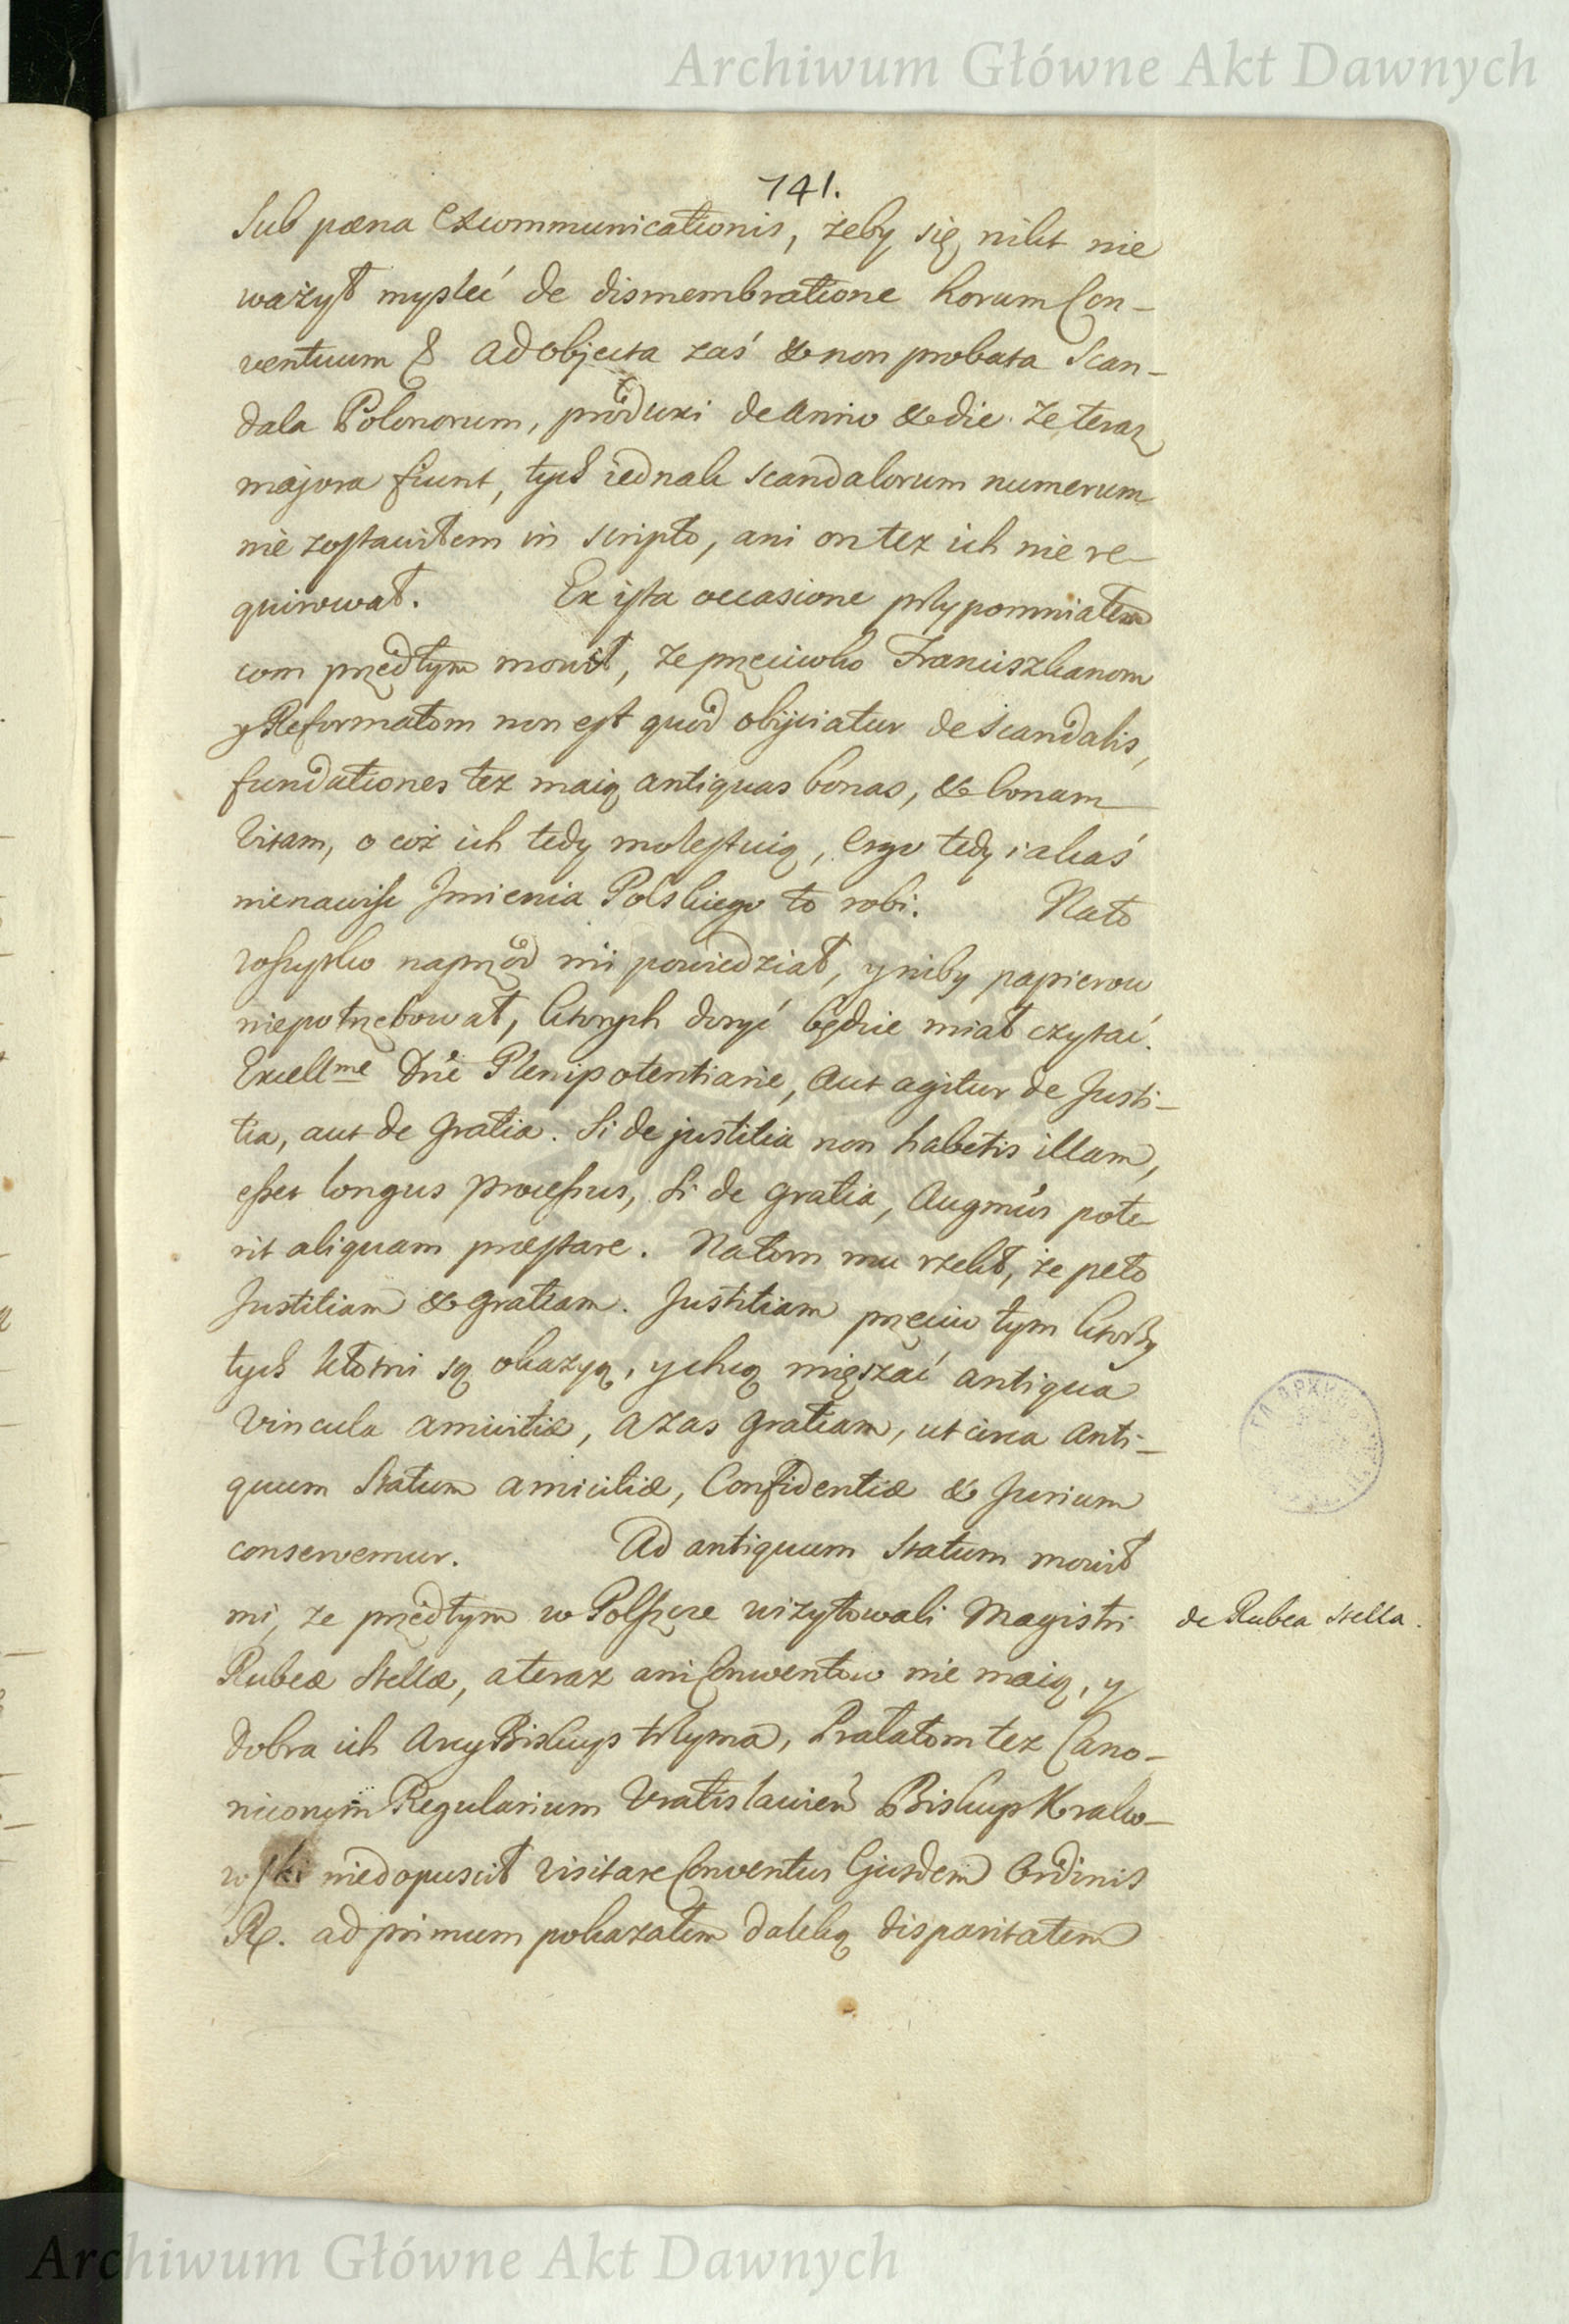 Archiwum Główne Akt Dawnych
741.
Sub pœna Excommunicationis, żeby się nikt nie
ważył mysleć de dismembratione horum Con-
ventuum & ad objecta zaś & non probata Scan-
dala Polonorum, produxi de Anno & die. Ze teraz
majora fiunt, tych iednak scandalorum numerum
nie zostawiłem in scripto, ani on tez ich nie re-
quirował. Ex ista occasione przypomniałem
com przedtym mowił, ze przeciwko Franciszkanom
y Reformatom non est quod obijciatur de scandalis,
fundationes tez maią antiquas bonas, & bonam
Vitam, o coż ich tedy molestuią, Ergo tedy iakaś
nienawiść Jmienia Polskiego to robi. Nato
wszystko naprzod mi powiedział, y niby papierow
niepotrzebował, ktorych dosyć będzie miał czytać.
Excellme Dne Plenipotentiarie, Aut agitur de Justi-
tia, aut de gratia. Si de justitia non habetis illam,
esset longus processus, Si de gratia, Augmus pote-
rit aliquam præstare. Natom mu rzekł, że peto
Justitiam & gratiam. Justitiam przeciw tym ktorzy
tych kłotni są okazyą, y chcą mięszać antiqua
Vincula amicitiæ, A zas gratiam, ut circa Anti-
quum Statum amicitiæ, Confidentiæ & Jurium
conservemur. Ad antiquum Statum mowił
mi, ze przedtym w Polszcze wizytowali Magistri
de Rubea Stella.
Rubeæ Stellæ, a teraz ani Conwentow nie maią, y
dobra ich ArcyBiskup trzyma, Prałatom tez Cano-
nicorum Regularium Vratislavien Biskup Krako-
wski niedopuscił visitare Conventus Ejusdem Ordinis
R. ad primum pokazałem daleką disparitatem
Archiwum Główne Akt Dawnych